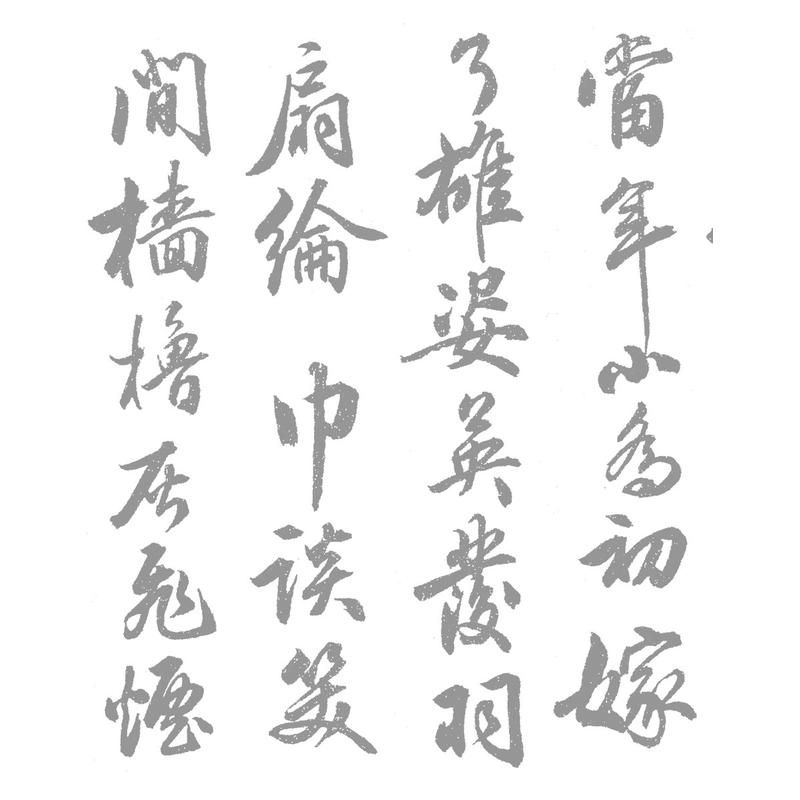 當年小喬初嫁
了雄姿英發羽
扇綸巾談笑
間檣櫓灰飛煙